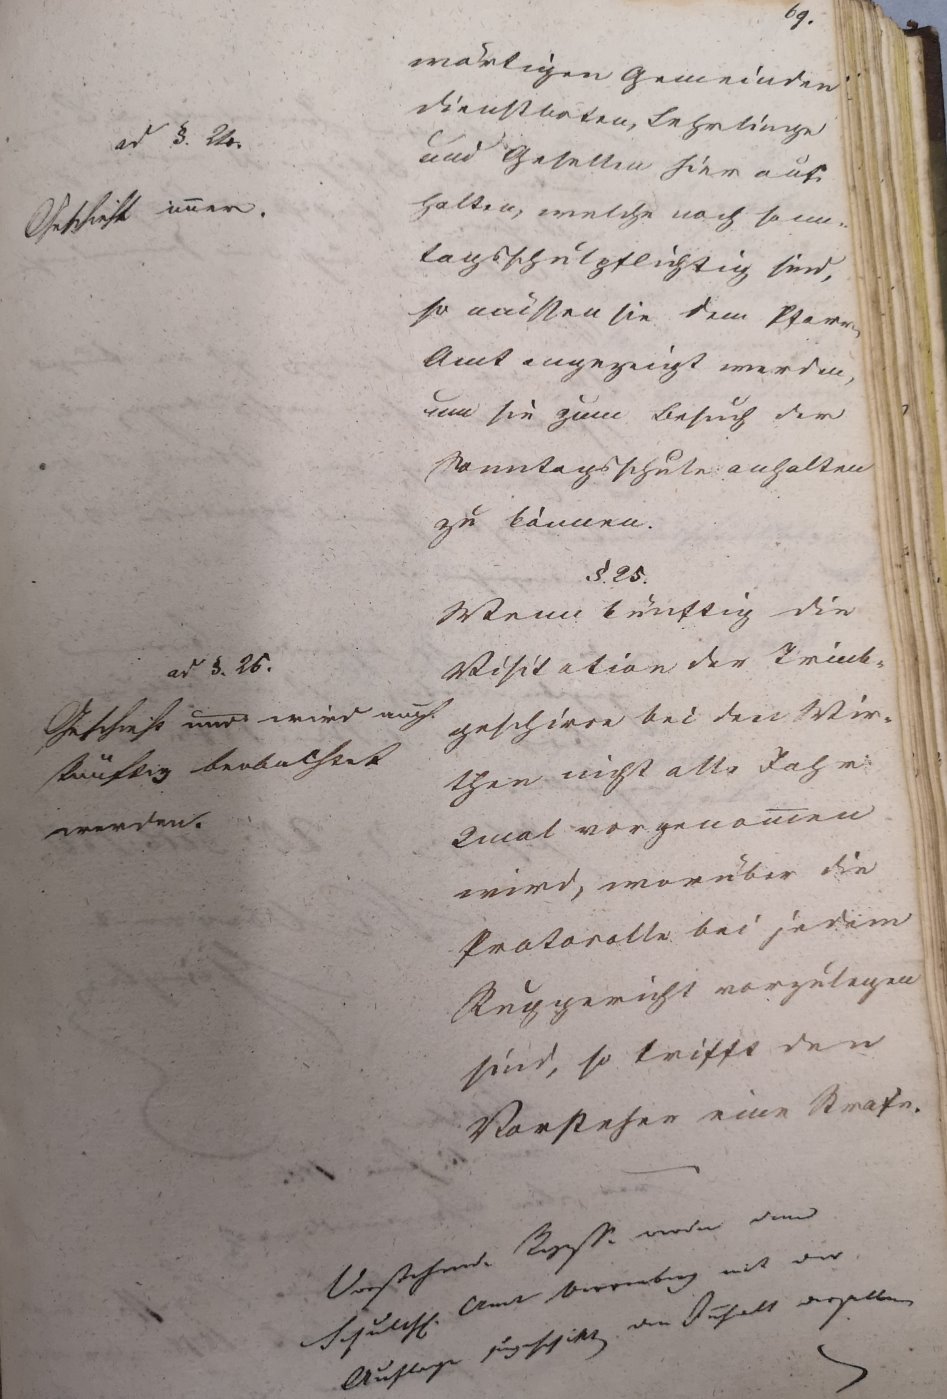 69.
wärtigen Gemeinden
Dienstboten, Lehrlinge
und Gesellen hier auf-
halten, welche noch sonn-
tagsschulpflichtig sind,
so müssen sie dem Pfarr
Amt angezeigt werden,
um sie zum Besuch der
Sonntagsschule anhalten
zu können.
ad §. 24.
Geschieht immer.
§. 25.
Wenn künftig die
Visitation der Trink-
geschirre bei den Wir-
then nicht alle Jahr
2mal vorgenom̅en
wird, worüber die
Protocolle bei jedem
Ruggericht vorzulegen
sind, so trifft den
Vorsteher eine Strafe.
ad §. 25.
Geschieht und wird auch
künftig beobachtet
werden.
Vorstehende Rezesse werden dem
Schulth. Amt mit der
Auflage zugeschickt, den Inhalt derselben